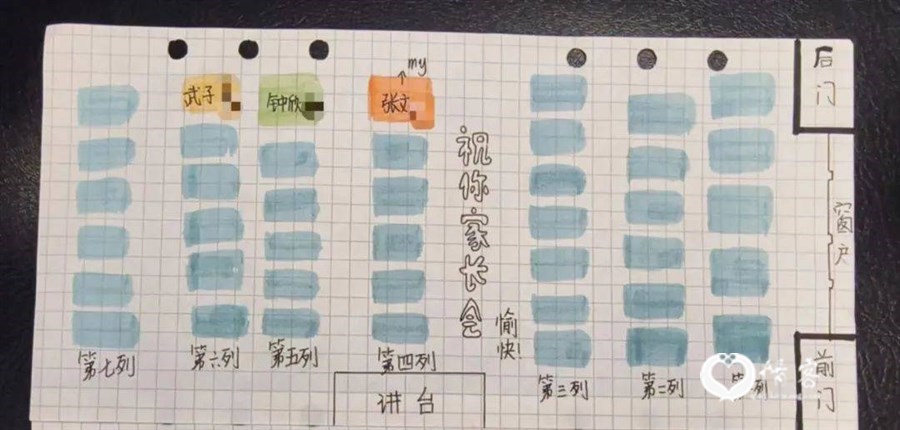 my
后门
武子
钟欣
张文
祝你家长会
愉快!
窗户
第七列
第六列
第五列
第四列
第三列
第二列
列
讲台
前门